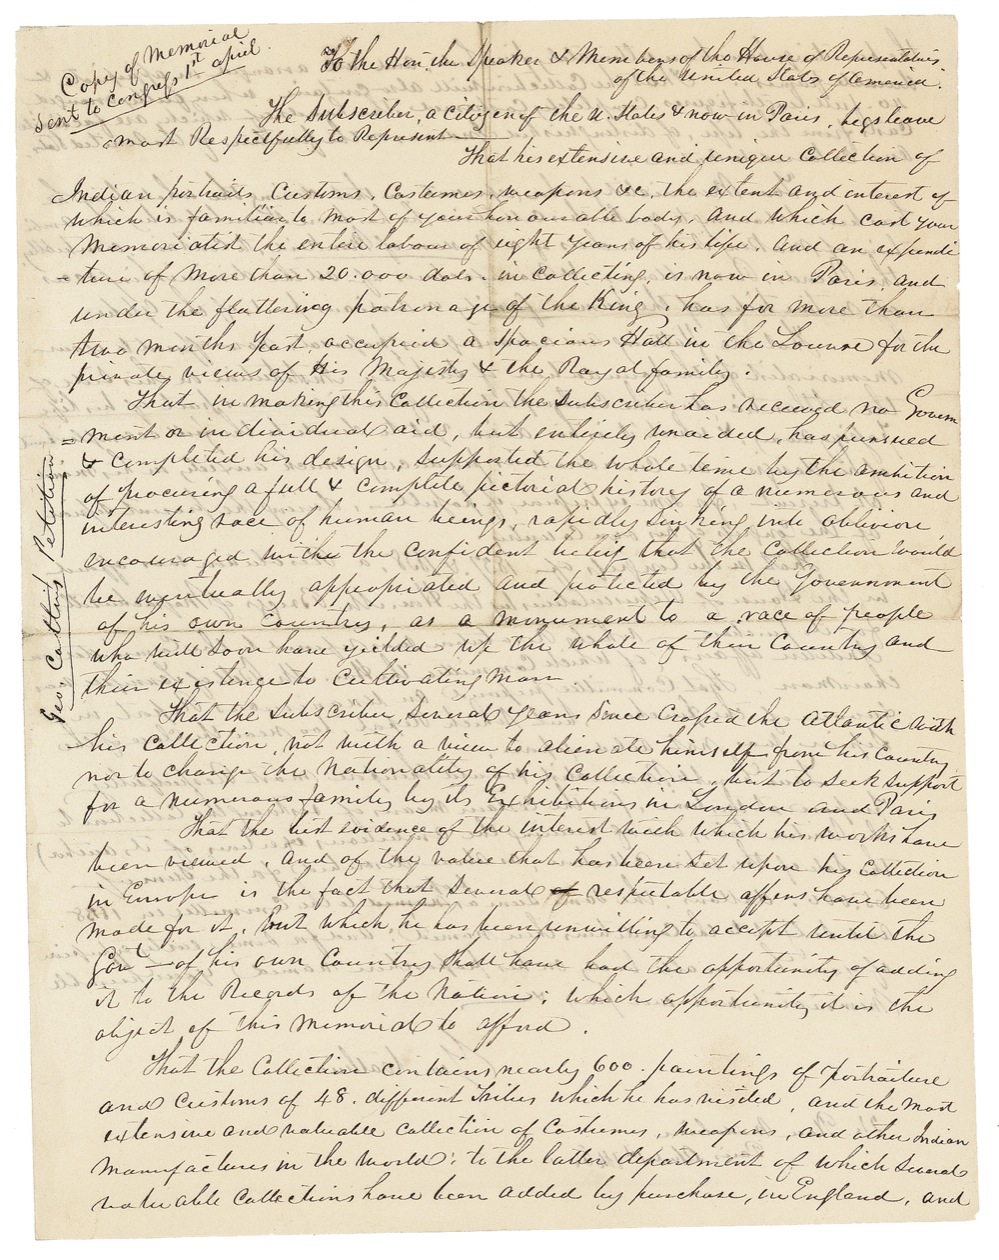 Copy of Memorial
Sent to Congress 1st april.
To the Hon. the Speaker & Members of the House of Representatives
of the United States of America.
The Subscriber, a citizen of the U. States & now in Paris, begs leave
most Respectfully to Represent—
That his extensive and unique Collection of
Indian portraits, Customs, Costumes, weapons &c. the extent and interest of
which is familiar to most of your honourable body, and which cost your
Memorialist the entire labour of eight years of his life, and an expendi
-ture of more than 20.000 dols. in collecting, is now in Paris, and
under the flattering patronage of the King, has for more than
two months past, occupied a Spacious Hall in the Louvre for the
private views of His Majesty & the Royal family.
That in making this Collection the Subscriber has received no Govern
=ment or individual aid, but entirely unaided, has pursued
& completed his design, supported the whole time by the ambition
of procuring a full & complete pictorial history of a numerous and
interesting race of human beings, rapidly sinking into oblivion
encouraged with the confident belief that the Collection would
be eventually appropriated and protected by the Government
of his own Country, as a monument to a race of people
who will soon have yielded up the whole of their Country and
their existence to Cultivating Man.
That the Subscriber, Several years Since Crossed the Atlantic with
his Collection, not with a view to alienate himself from his Country
nor to change the Nationality of his Collection, but to seek support
for a numerous family by its Exhibitions in London and Paris
That the best evidence of the interest with which his works have
been viewed, and of the value that has been set upon his Collection
in Europe is the fact that Several of respectable offers have been
made for it, but which, he has been unwilling to accept until the
Govt — of his own Country shall have had the opportunity of adding
it to the Records of the Nation; which opportunity it is the
object of this Memorial to afford.
That the Collection contains nearly 600. paintings of portraiture
and Customs of 48. different tribes which he has visited, and the most
extensive and valuable collection of Costumes, weapons, and other Indian
Manufactures in the World; to the latter department of which Several
valuable Collections have been added by purchase, in England, and
Geo. Catlin's Petition.